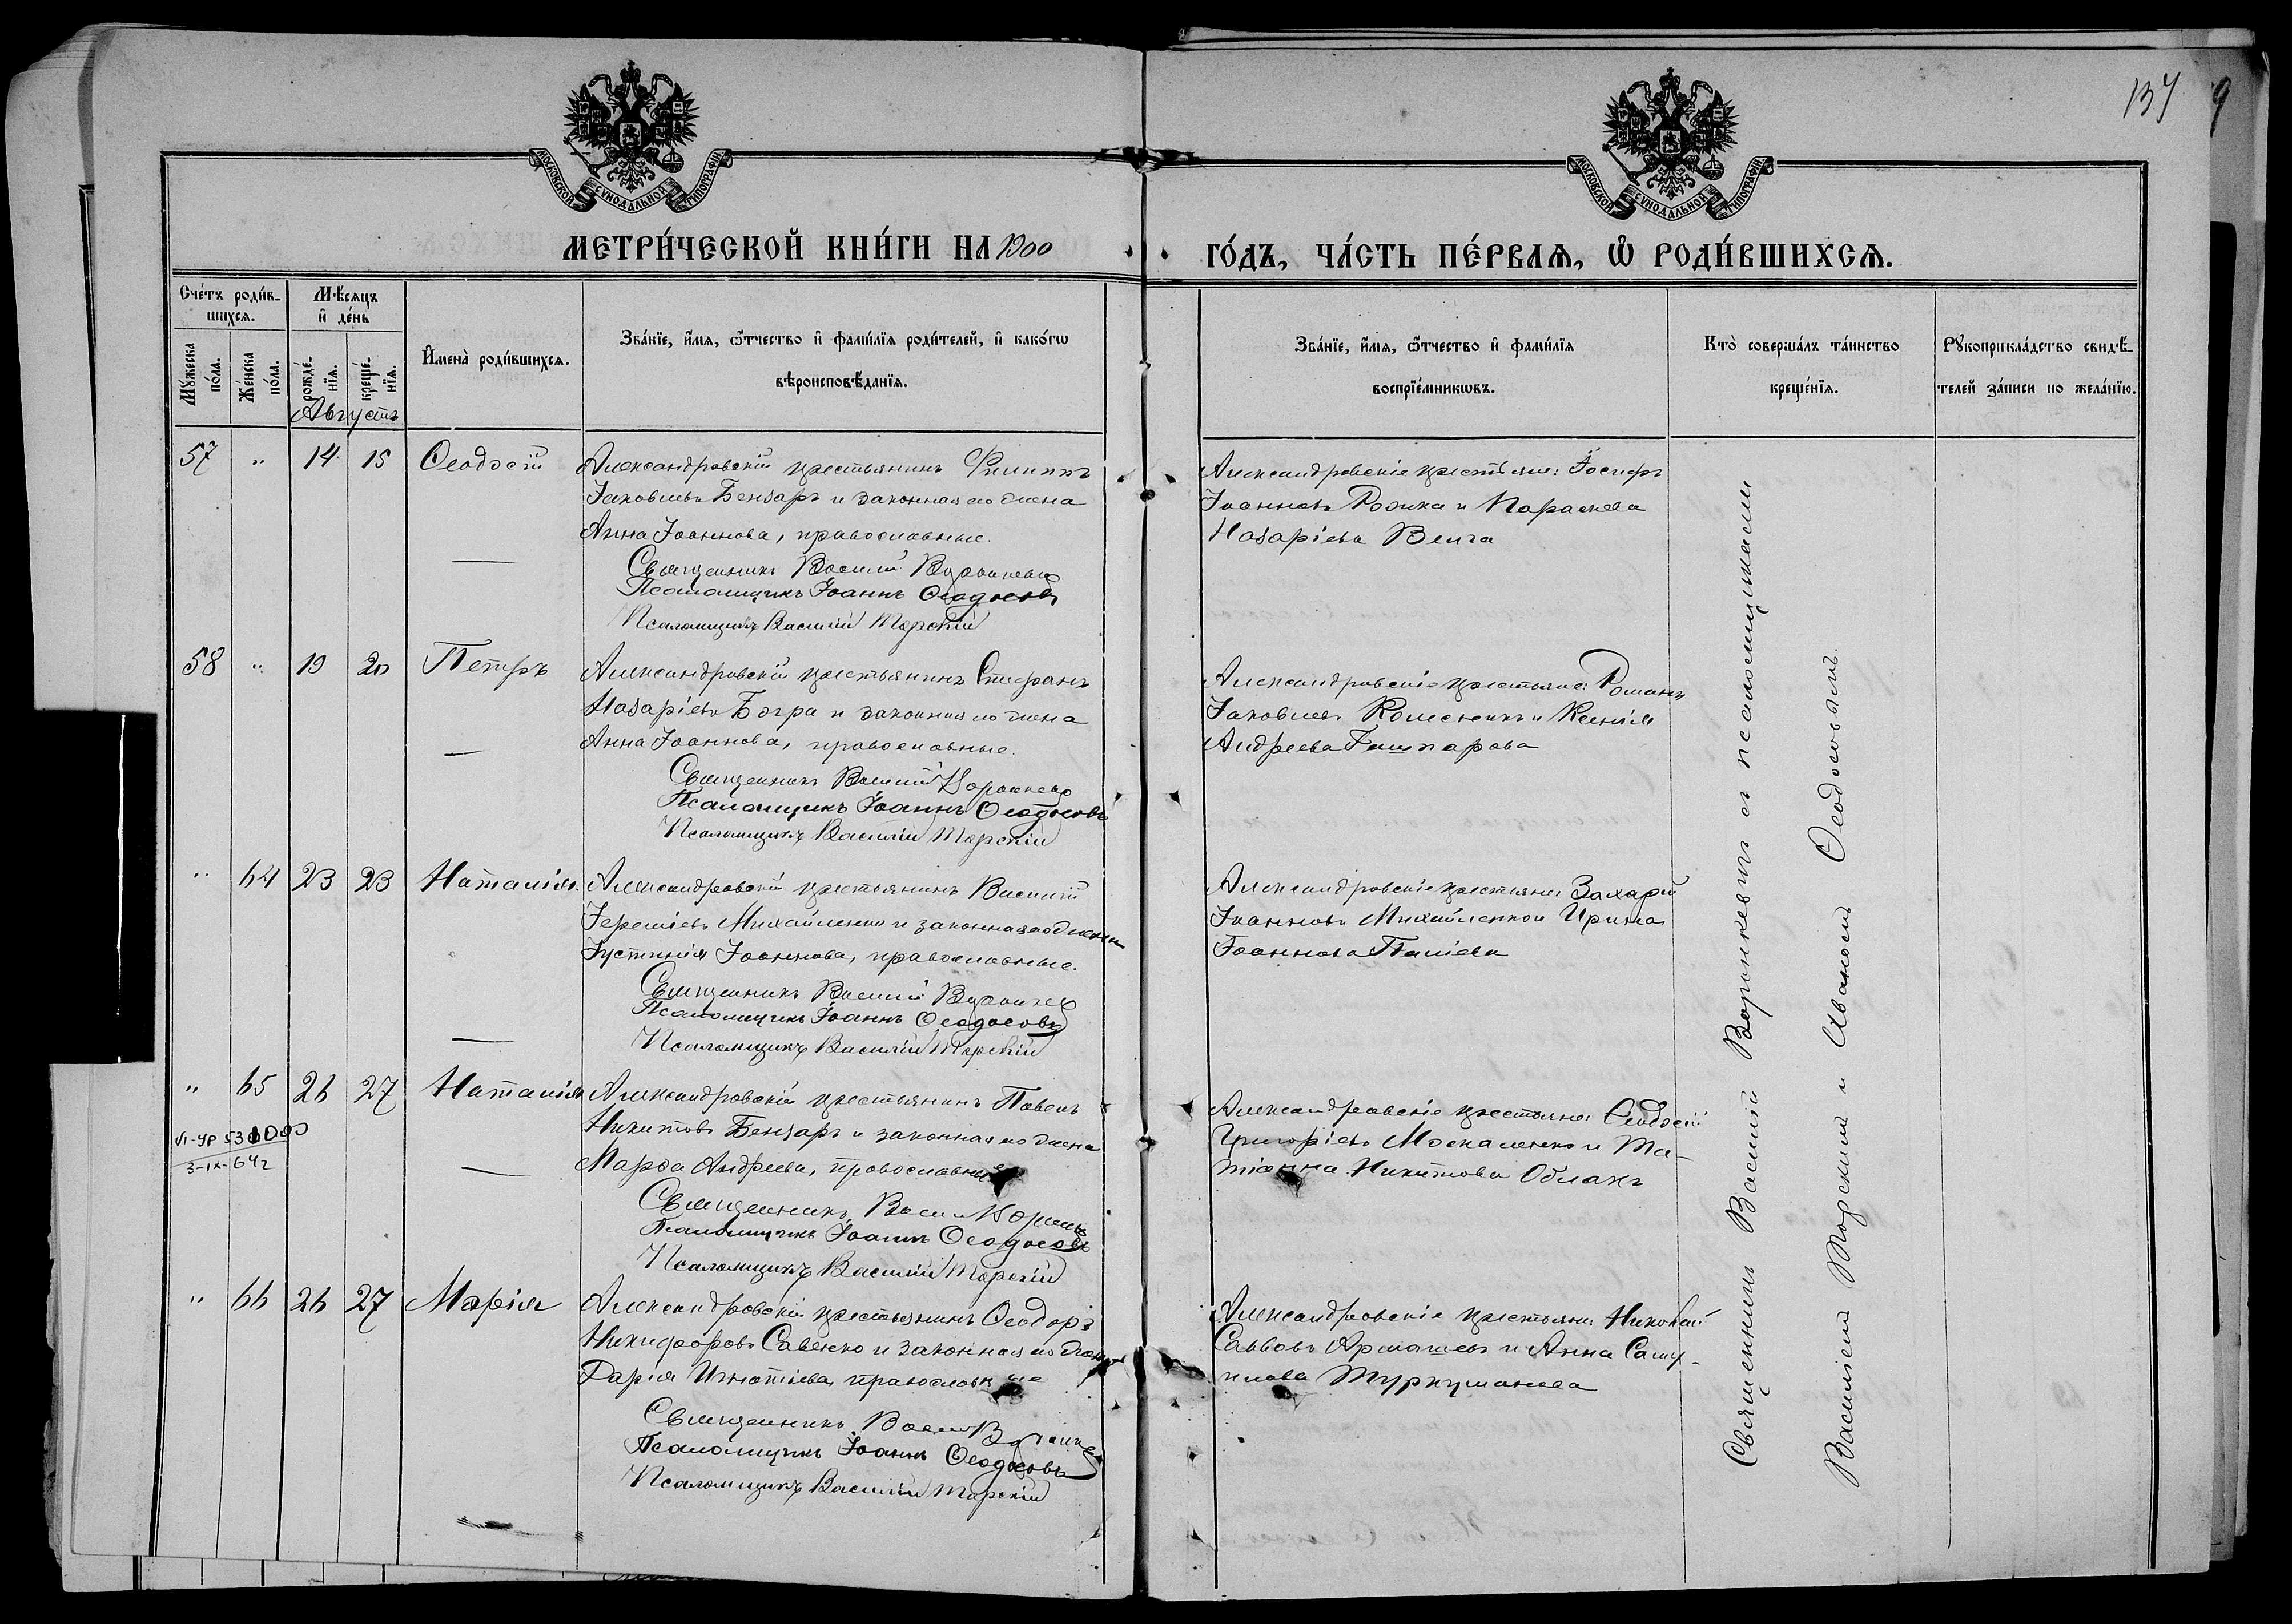 137
9
МОСКОВСКОЙ СѴНОДАЛЬНОЙ ТИПОГРАФІИ
МОСКОВСКОЙ СѴНОДАЛЬНОЙ ТИПОГРАФІИ
МЕТРИ́ЧЕСКОЙ КНИ́ГИ НА 1900
ГО́ДЪ, ЧА́СТЬ ПЕ́РВАѦ, Ѡ РОДИ́ВШИХСѦ.
Сче́тъ роди́в-
шихсѧ.
Мѣ́сѧцъ
и҆ де́нь
Мꙋ́жеска
по́ла.
Же́нска
по́ла.
рожде́-
нїѧ.
креще́-
нїѧ.
И҆мена̀ роди́вшихсѧ.
Зва́нїе, и҆́мѧ, ѻ҆́тчество и҆ фами́лїѧ роди́телей, и҆ како́гѡ
вѣроисповѣ́данїѧ.
Зва́нїе, и҆́мѧ, ѻ҆́тчество и҆ фами́лїѧ
воспрїе́мникѡвъ.
Кто̀ соверша́лъ та́инство
креще́нїѧ.
Рꙋкоприкла́дство свидѣ́-
телей за́писи по жела́нїю.
Августъ
57 " 14 15 Ѳеодосій
Александровскій крестьянинъ Филиппъ
Іаковлевъ Бензаръ и законная его жена
Анна Іоаннова, православные.
Священникъ Василій Воронкевичъ
Псаломщикъ Іоаннъ Ѳеодосовъ
Псаломщикъ Василій Торскій
Александровскіе крестьяне: Іосифъ
Іоанновъ Рожка и Параскева
Назаріева Велга
58 " 19 20 Петръ
Александровскій крестьянинъ Стефанъ
Назаріевъ Багра и законная его жена
Анна Іоаннова, православные.
Священникъ Василій Воронкевичъ
Псаломщикъ Іоаннъ Ѳеодосовъ
Псаломщикъ Василій Торскій
Александровскіе крестьяне: Романъ
Іаковлевъ Колесникъ и Ксенія
Андреева Гашпарова
" 64 23 23 Наталія
Александровскій крестьянинъ Василій
Іереміевъ Михайленко и законная его жена
Іустинія Іоаннова, православные.
Священникъ Василій Воронкевичъ
Псаломщикъ Іоаннъ Ѳеодосовъ
Псаломщикъ Василій Торскій
Александровскіе крестьяне: Захарій
Іоанновъ Михайленко и Ирина
Іоаннова Паліева
" 65 26 27 Наталія
VI-УР
3-IX-64г
Александровскій крестьянинъ Павелъ
Никитовъ Бензаръ и законная его жена
Марѳа Андреева, православные
Священникъ Василій
Псаломщикъ Іоаннъ Ѳеодосовъ
Псаломщикъ Василій Торскій
Александровскіе крестьяне: Ѳеодосій
Григоріевъ Москаленко и Та-
тіанна Никитова Облакъ
" 66 26 27 Марія
Александровскій крестьянинъ Ѳеодоръ
Никифоровъ Савенко и законная его жена
Дарія Игнатіева, православные
Священникъ Василій
Псаломщикъ Іоаннъ Ѳеодосовъ
Псаломщикъ Василій Торскій
Александровскіе крестьяне: Николай
Савовъ Армашевъ и Анна Саму-
илова Туркуманова
Священникъ Василій Воронкевичъ съ псаломщиками
Василіемъ Торскимъ и Иваномъ Ѳеодосовымъ.